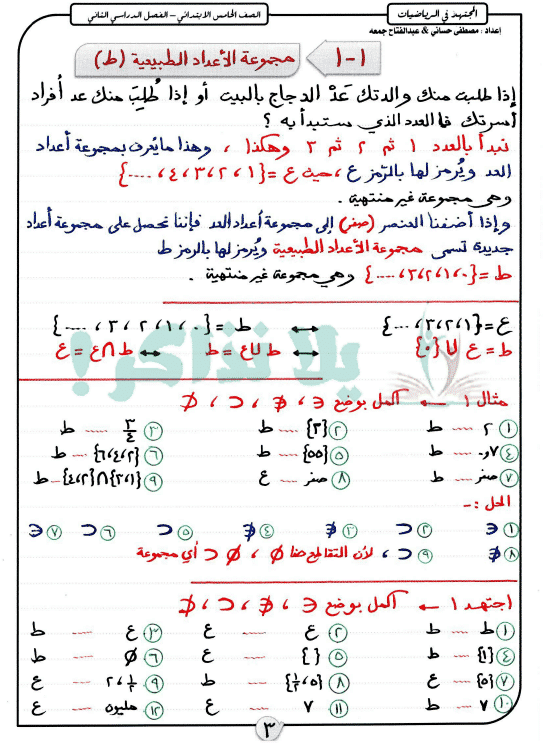 المجتهد في الرياضيات
الصف الخامس الابتدائي - الفصل الدراسي الثاني
إعداد : مصطفى حساني & عبدالفتاح جمعه
١-١ مجموعة الأعداد الطبيعية (ط)
إذا طلبت منك والدتك عَدَّ الدجاج بالبيت أو إذا طُلِبَ منك عد أفراد
أسرتك فما العدد الذي ستبدأ به ؟
نبدأ بالعدد ١ ثم ٢ ثم ٣ وهكذا ، وهذا ما يُعرف بمجموعة أعداد
العد ويُرمز لها بالرمز ع ، حيث ع = {١،٢،٣،٤،....}
وهي مجموعة غير منتهية .
وإذا أضفنا العنصر (صفر) إلى مجموعة أعداد العد فإننا نحصل على مجموعة أعداد
جديدة تسمى مجموعة الأعداد الطبيعية ويُرمز لها بالرمز ط
ط = {٠،١،٢،٣،....} وهي مجموعة غير منتهية .
ع = {١،٢،٣،....} ↔ ط = {٠،١،٢،٣،....}
ط = ع ∪ {٠} ↔ ط ∪ ع = ط ↔ ط ∩ ع = ع
يلا نذاكر !
مثال ١ ← أكمل بوضع ∈ ، ∉ ، ⊂ ، ⊄
① ٢ ---- ط ② {٣} ---- ط ③ ٣/٤ ---- ط
④ ٠,٧ ---- ط ⑤ {٥٥} ---- ط ⑥ {٢،٤،٦} ---- ط
⑦ صفر ---- ط ⑧ صفر ---- ع ⑨ {٢،١} ∩ {٤،٣} -- ط
الحل :-
① ∈ ② ⊂ ③ ∉ ④ ∉ ⑤ ⊂ ⑥ ⊂ ⑦ ∈
⑧ ∉ ⑨ ⊂ ، لأن التقاطع هنا ∅ ، ∅ ⊂ أي مجموعة
اجتهد ١ ← أكمل بوضع ∈ ، ∉ ، ⊂ ، ⊄
① ط ---- ط ② ع ---- ع ③ ع ---- ط
④ {١} ---- ط ⑤ { } ---- ع ⑥ ∅ ---- ط
⑦ {٥} ---- ع ⑧ {٥، ١/٢} ---- ط ⑨ ٢، ١/٢ ---- ع
⑩ ٧ ---- ط ⑪ ٧ ---- ع ⑫ مليون ---- ع
٣